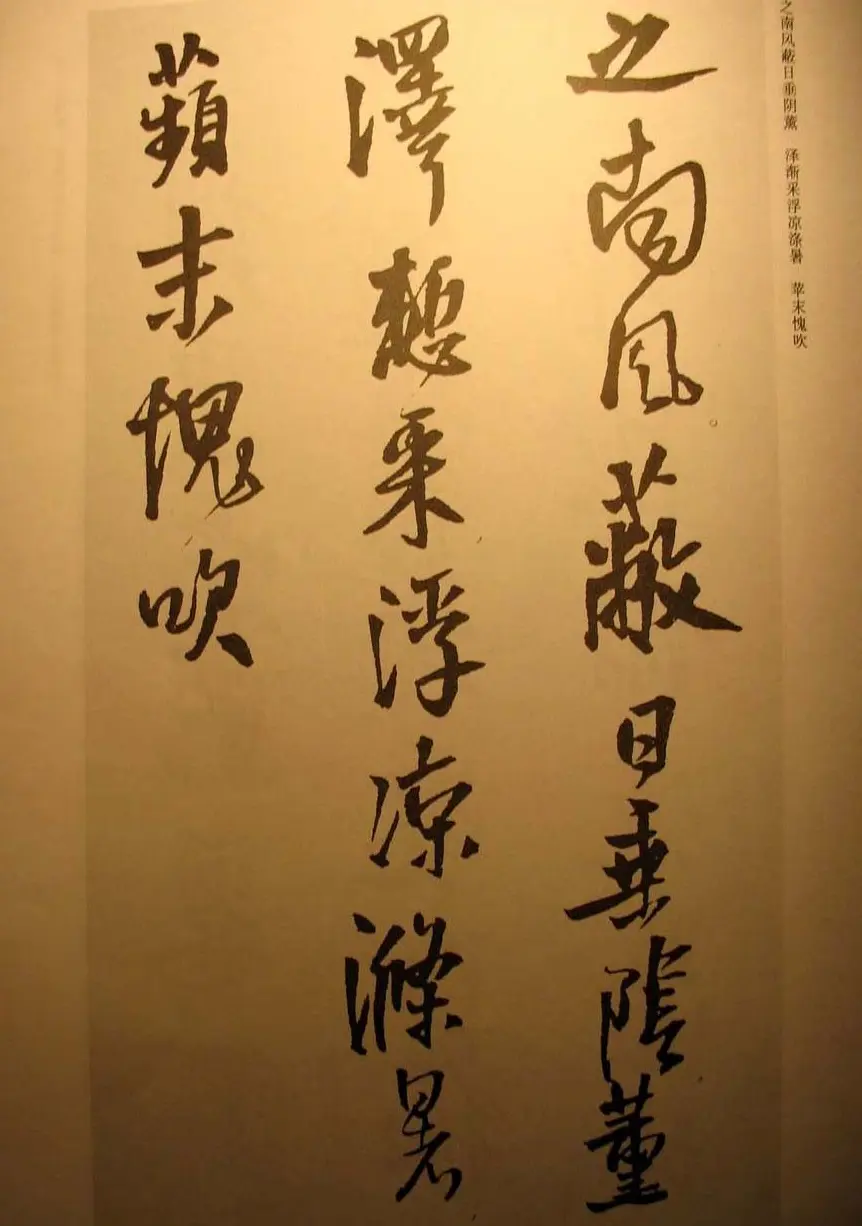 之南风蔽日垂阴薰　泽渐采浮凉涤暑　苹末愧吹
之南風蔽日垂陰薰
澤慙采浮涼滌暑
蘋末愧吹